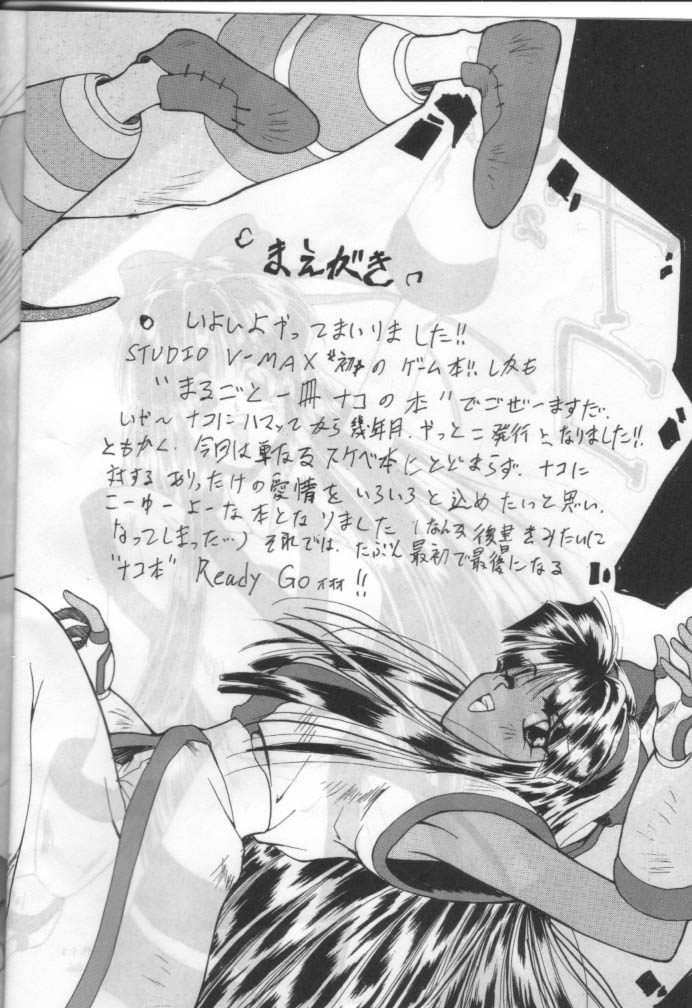 『まえがき』
◦ いよいよやってまいりました!!
STUDIO V-MAX "初"の ゲーム本!! しかも
"まるごと一冊ナコの本"でごぜーますだ.
いや〜ナコにハマッてから幾年月、やっとこ発行となりました!!
ともかく、今回は単なるスケベ本にとどまらず、ナコに
対するありったけの愛情をいろいろと込めたいっと思い、
こーゆーよーな本となりました (なんか後書きみたいに
なってしまった…) それでは、たぶん最初で最後になる
"ナコ本" Ready Go ォォォ!!